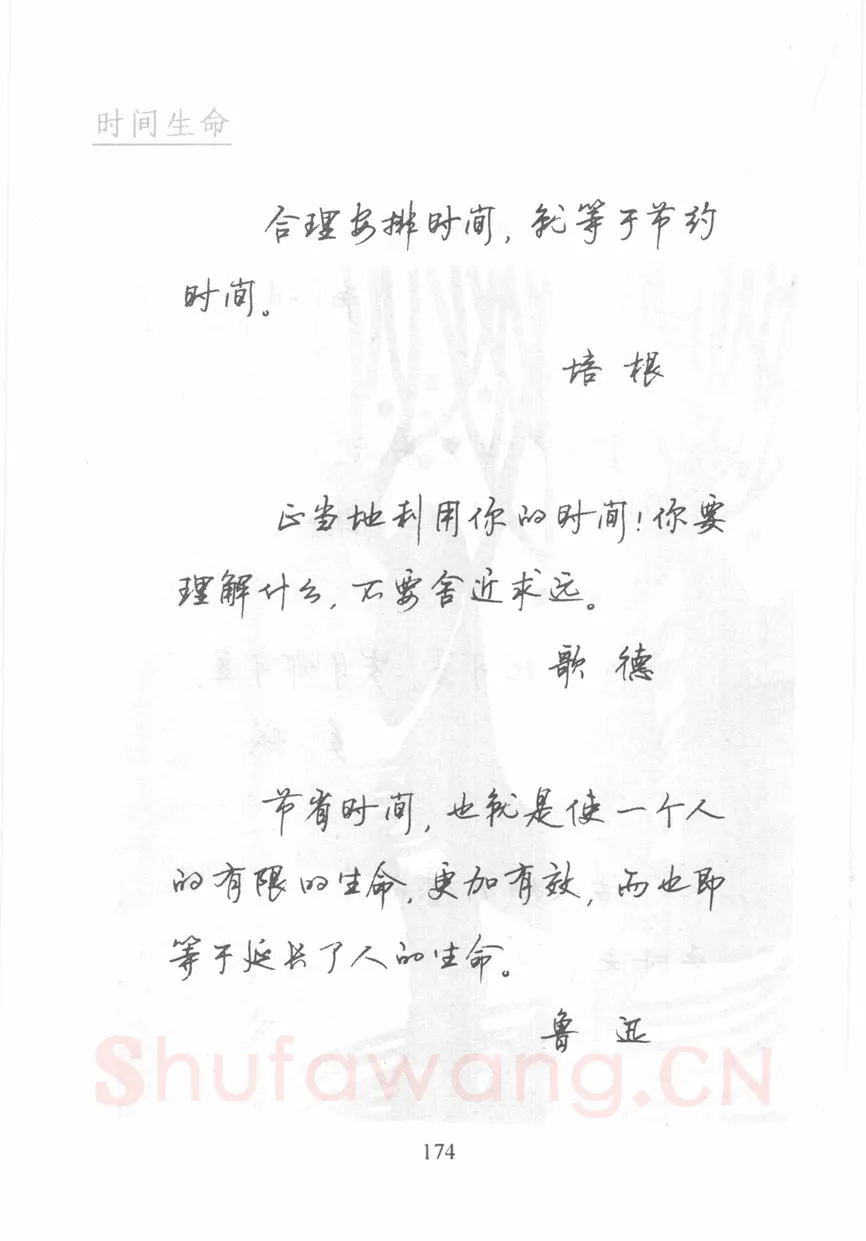 时间生命
合理安排时间，就等于节约
时间。
培根
正当地利用你的时间！你要
理解什么，不要舍近求远。
歌德
节省时间，也就是使一个人
的有限的生命，更加有效，而也即
等于延长了人的生命。
鲁迅
Shufawang.CN
174